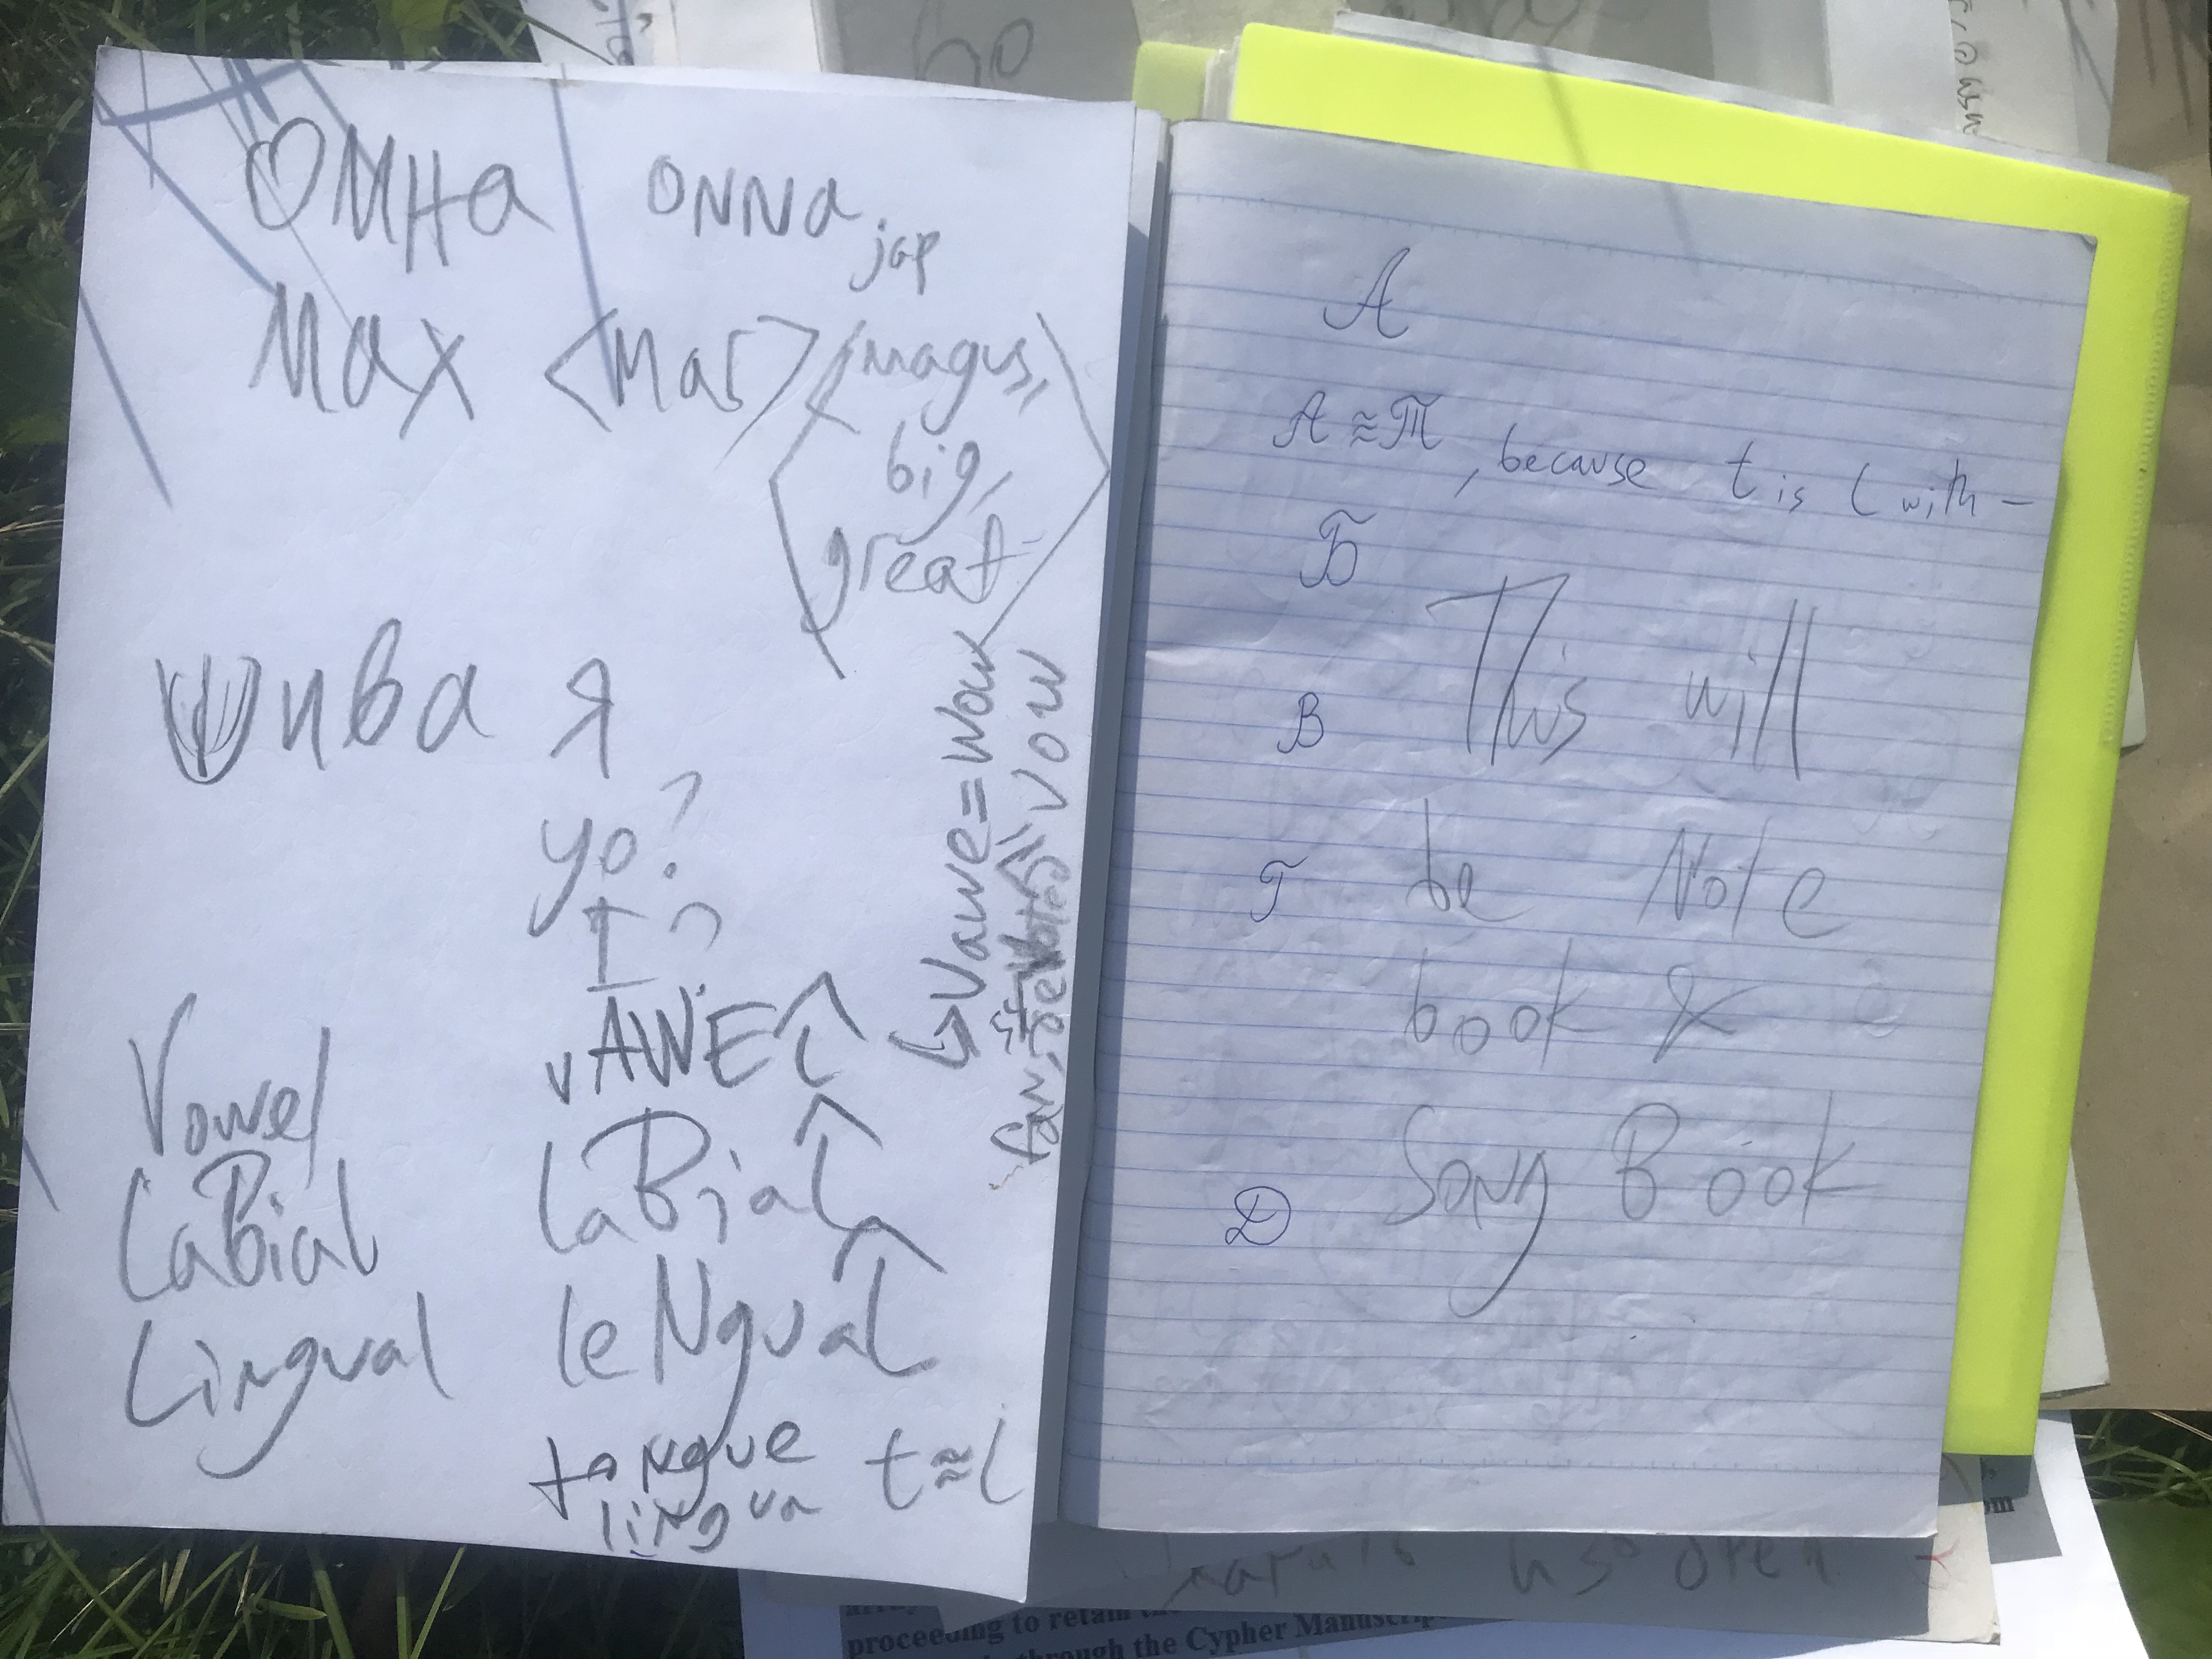 Омна onna jap
Max <mas> / magus,
big,
great
Unba Я
yo?
I;
Vowel VAWEL
↳ Vawe = Wow
vow
LaBial LaBiaL
Lingval leNgvaL
toNgve t≈l
liNgva
A
A ≈ П, because t is l with -
Б
В This will
Г be Note
book &
Д Song Book
proceeding to retain
through the Cypher Manuscrip